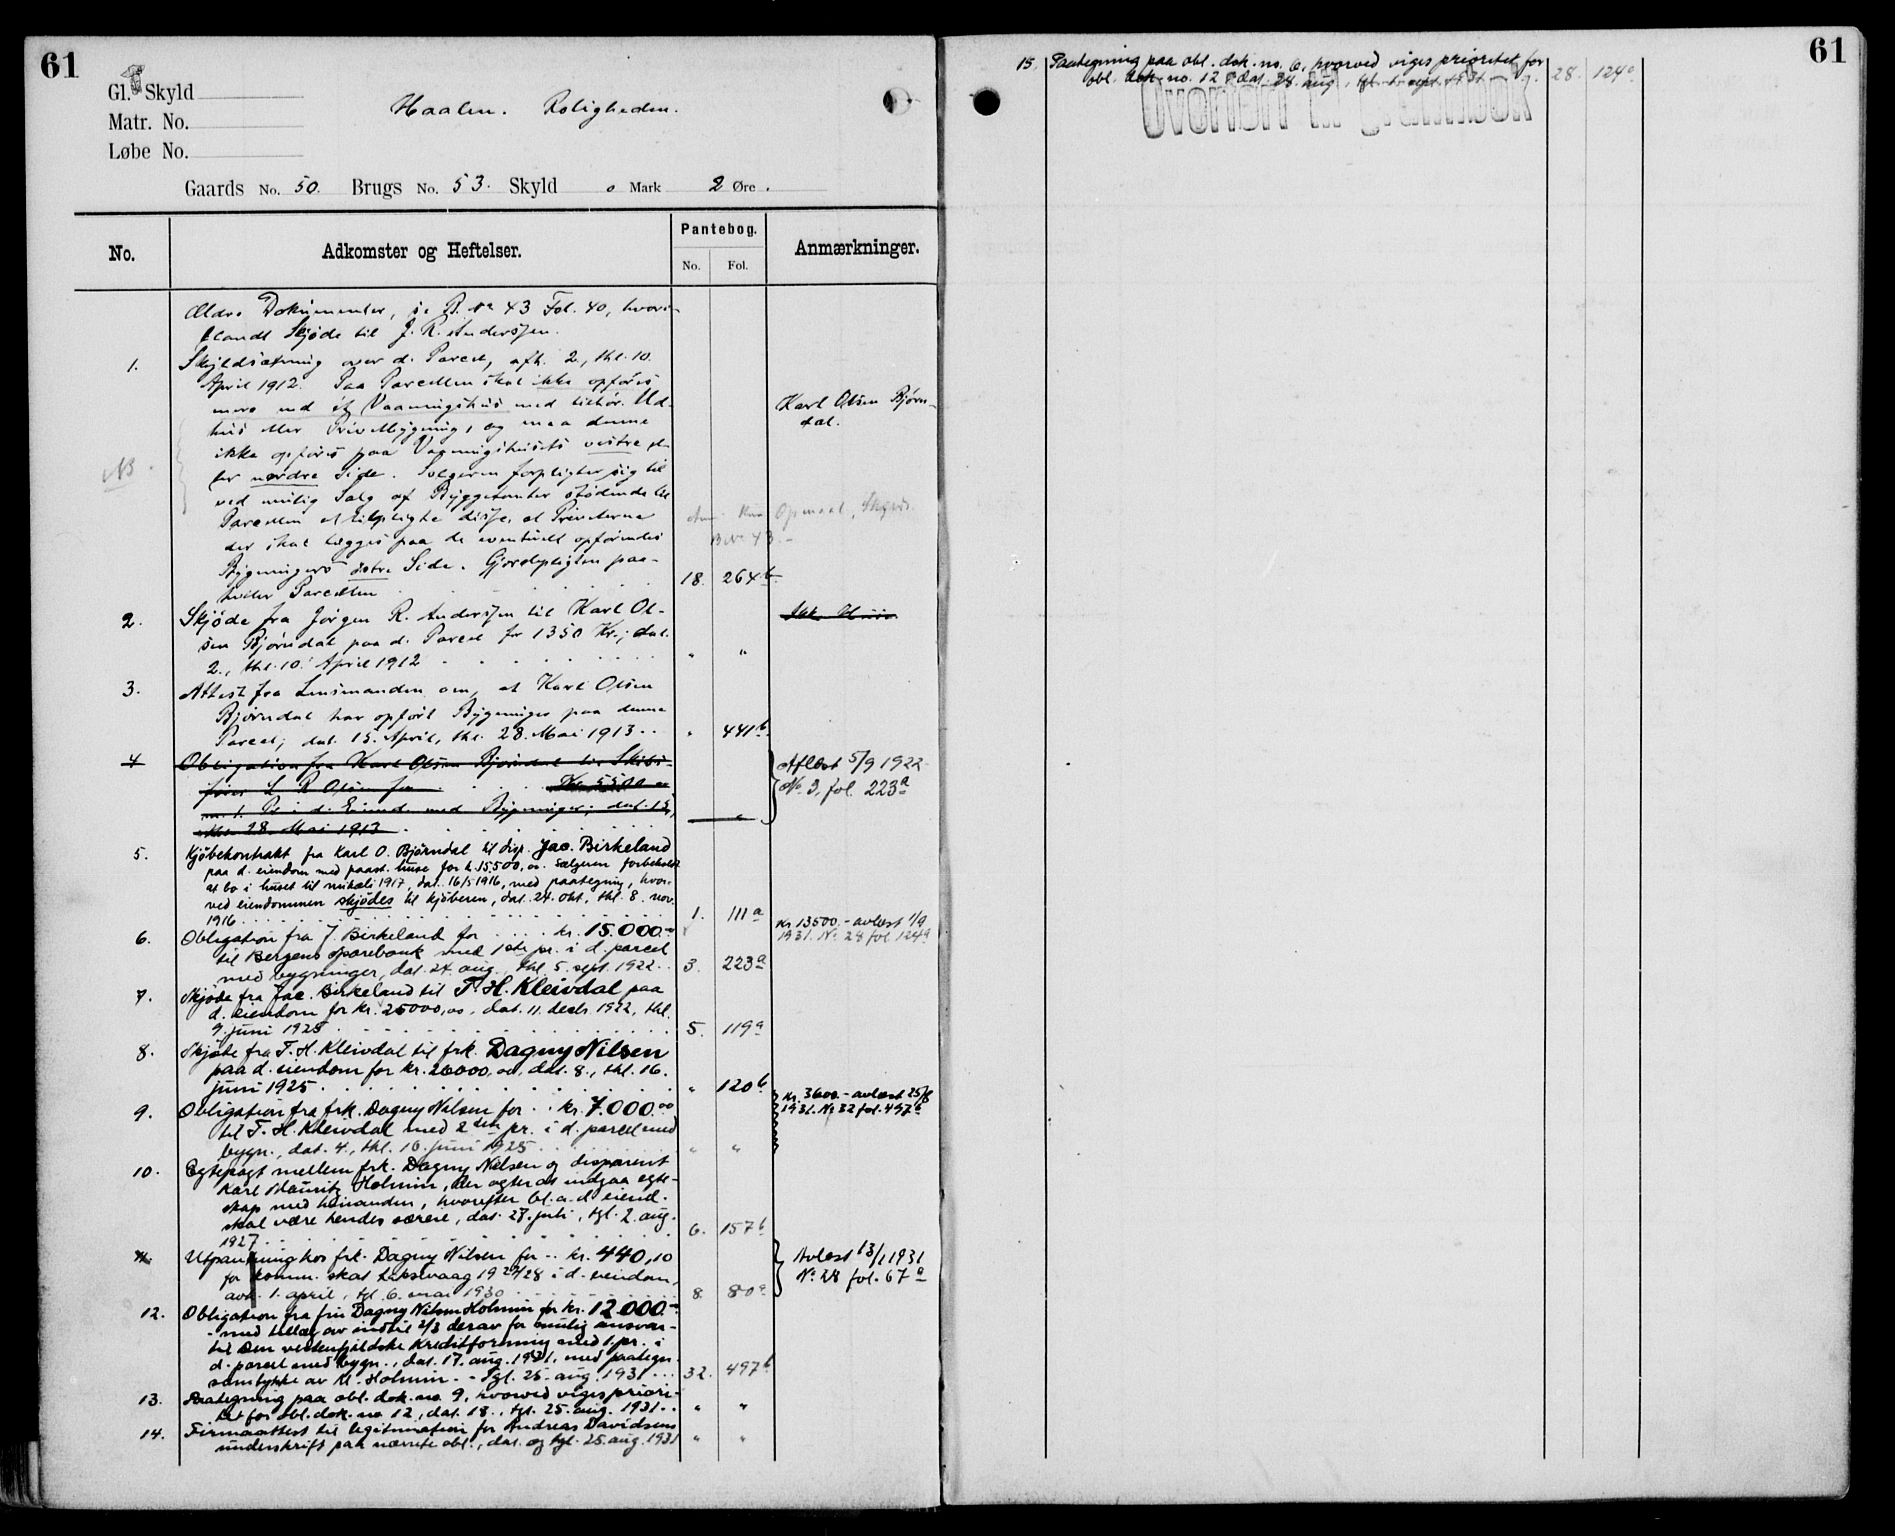 61
Gl. Skyld
Matr. No.
Løbe No.
Haalen. Roligheden.
Gaards No. 50. Brugs No. 53. Skyld 0 Mark 2 Øre.
No.
Adkomster og Heftelser.
Pantebog.
No. Fol.
Anmærkninger.
Ældre Dokumenter, se B. No 43 Fol. 40, hvori-
blandt Skjøde til J. R. Anderssen.
1. Skyldsætning over d. Parcel, afh. 2., thl. 10.
April 1912. Paa Parcellen skal ikke opføres
mere end ét Vaaningshus med tilhør. Ud-
hus eller Privetbygning, og maa denne
ikke opføres paa Vaaningshusets vestre el-
ler nordre Side. Sælgeren forpligter sig til
ved mulig Salg af Byggetomter stødende til
Parcellen at tilpligte disse, at Priveterne
der skal lægges paa de eventuelt opførendes
Bygningers østre Side. Gjerdepligten paa-
hviler Parcellen 18. 264b
NB.
Karl Olsen Bjørn-
dal.
Opmaal. Skjøds.
B No 43.-
2. Skjøde fra Jørgen R. Anderssen til Karl Ol-
sen Bjørndal paa d. Parcel for 1350 Kr.; dat.
2., thl. 10. April 1912 " "
3. Attest fra Lensmanden om, at Karl Olsen
Bjørndal har opført Bygninger paa denne
Parcel; dat. 15. April, thl. 28. Mai 1913 " 441b
4 Obligation fra Karl Olsen Bjørndal til Skibs-
fører L R Olsen for Kr. 5500
m. 1. Pr i d. Eiend. med Bygninger; dat. 15,
thl. 28. Mai 1913 "
Aflæst 5/9 1922
No. 3, fol. 223a
5. Kjøbekontrakt fra Karl O. Bjørndal til disp. Jac. Birkeland
paa d. eiendom med paast. huse for k. 15500,oo. Sælgeren forbeholdt
at bo i huset til mikæli 1917, dat. 16/5 1916, med paategning, hvor-
ved eiendommen skjødes til kjøberen, dat. 24. okt., thl. 8. nov.
1916 1. 111a
6. Obligation fra J. Birkeland for kr. 15.000.-
til Bergens sparebank med 1ste pr. i d. parcel
med bygninger, dat. 24. aug., thl. 5. sept. 1922 3. 223a
Kr. 13500.- avlæst 1/9
1931. No 28 fol 124a
7. Skjøte fra Jac. Birkeland til T. H. Kleivdal paa
d. eiendom for kr. 25000,oo, dat. 11. decbr. 1922, thl.
9. juni 1925 5. 119a
8. Skjøte fra T. H. Kleivdal til frk. Dagny Nilsen
paa d. eiendom for kr. 20000,oo, dat. 8., thl. 16.
juni 1925 " 120b
9. Obligation fra frk. Dagny Nilsen for kr. 7.000.oo
til T. H. Kleivdal med 2den pr. i d. parcel med
bygn., dat. 4., thl. 16. juni 1925 " "
Kr. 3600.- avlæst 25/8
1931. No 32 fol. 497b
10. Egtepagt mellem frk. Dagny Nilsen og disponent
Karl Mauritz Holmin, der agter at indgaa egte-
skap med hinanden, hvorefter bl. a. d. eiend.
skal være hendes særeie, dat. 27. juli, tgl. 2. aug.
1927 6. 157b
11. Utpantning hos frk. Dagny Nilsen for kr. 440,10
for komm. skat Laksevaag 1927/28 i d. eiendom,
avh. 1. april, tgl. 6. mai 1930 8. 80a
Avlæst 13/1 1931
No. 28 fol. 67a
12. Obligation fra fru Dagny Nilsen Holmin for kr. 12.000.-
- med tillæg av indtil 2/3 derav for mulig ansvar -
til Den vestenfjeldske Kreditforening med 1. pr. i
d. parcel med bygn., dat. 17. aug. 1931, med paategn.
samtykke av K. Holmin. - Tgl. 25. aug. 1931 32. 497b
13. Paategning paa obl. dok. no. 9, hvorved viges priori-
tet for obl. dok. no. 12, dat. 18., tgl. 25. aug. 1931 " "
14. Firmaattest til legitimation for Andreas Davidsens
underskrift paa nævnte obl., dat. og tgl. 25. aug. 1931 " "
61
15. Paategning paa obl. dok. no. 6, hvorved viges prioritet for
obl. dok. no. 12, dat. 28. aug., tgl. 1. sept. 1931 28. 124a
Overført til grunnbok